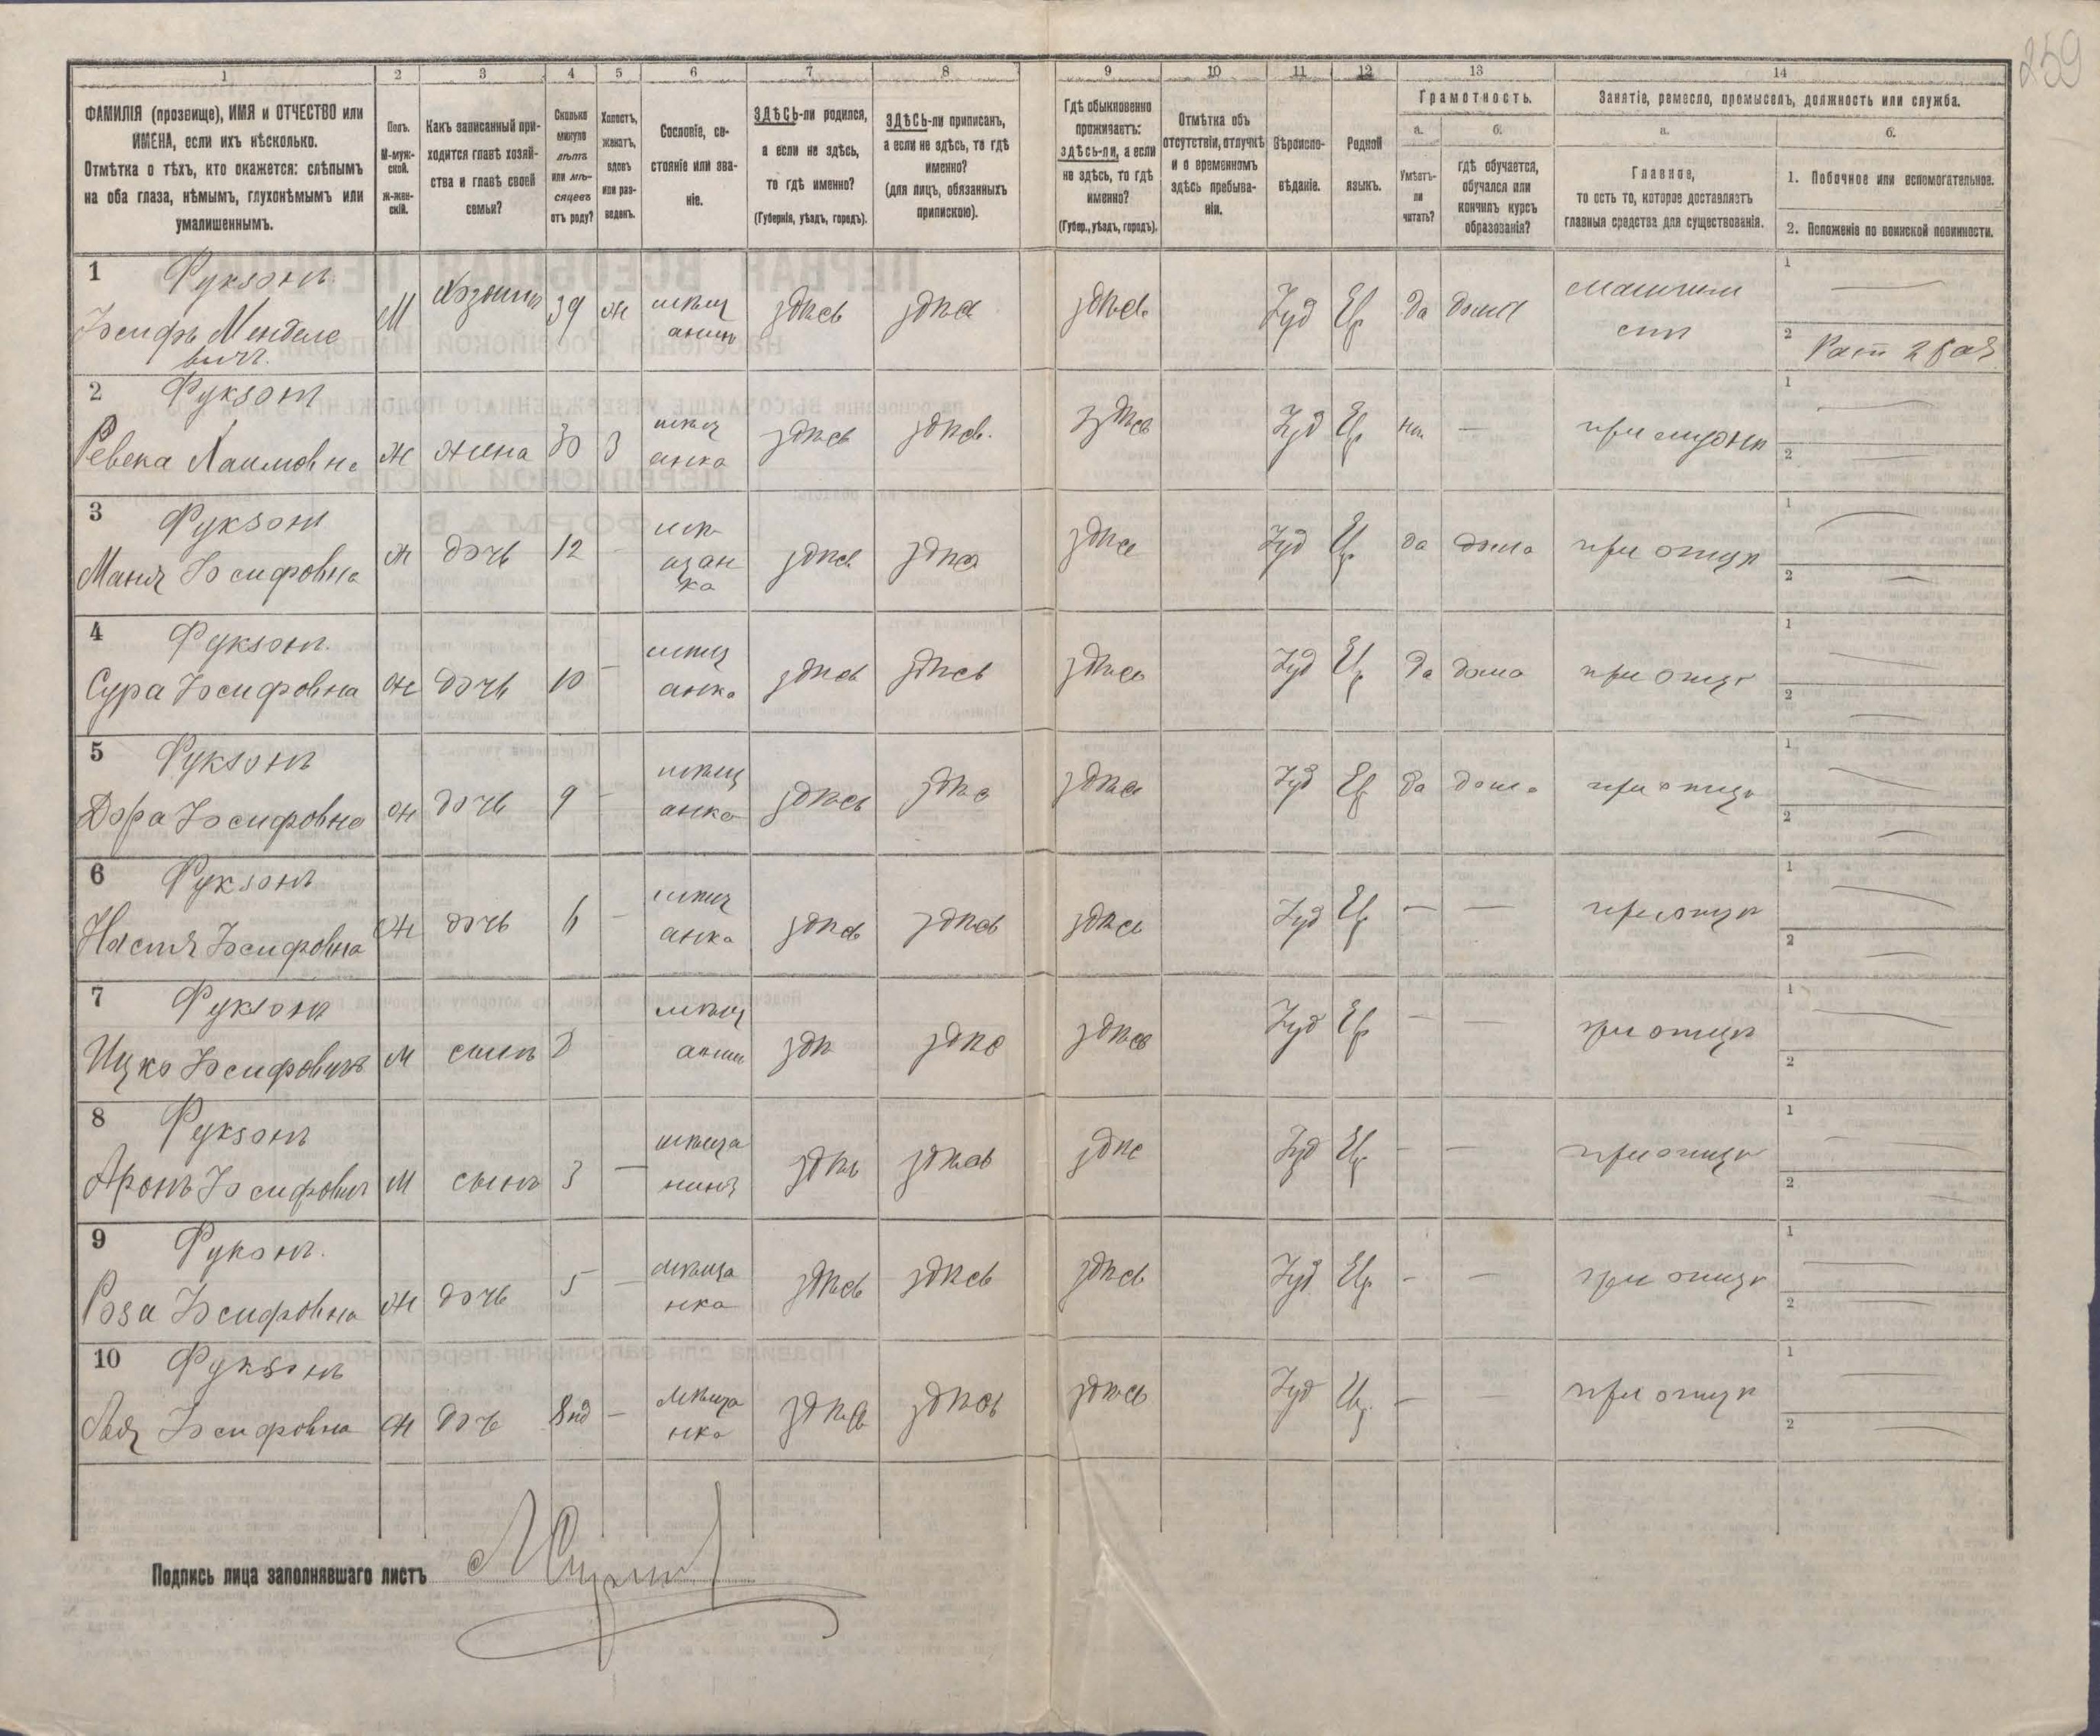 259
1 2 3 4 5 6 7 8 9 10 11 12 13 14
ФАМИЛІЯ (прозвище), ИМЯ и ОТЧЕСТВО или
ИМЕНА, если ихъ нѣсколько.
Отмѣтка о тѣхъ, кто окажется: слѣпымъ
на оба глаза, нѣмымъ, глухонѣмымъ или
умалишеннымъ.
Полъ.
М-муж-
ской.
Ж-жен-
скій.
Какъ записанный при-
ходится главѣ хозяй-
ства и главѣ своей
семьи?
Сколько
минуло
лѣтъ
или мѣ-
сяцевъ
отъ роду?
Холостъ,
женатъ,
вдовъ
или раз-
веденъ.
Сословіе, со-
стояніе или зва-
ніе.
ЗДѢСЬ-ли родился,
а если не здѣсь,
то гдѣ именно?
(Губернія, уѣздъ, городъ).
ЗДѢСЬ-ли приписанъ,
а если не здѣсь, то гдѣ
именно?
(для лицъ, обязанныхъ
припискою).
Гдѣ обыкновенно
проживаетъ:
здѣсь-ли, а если
не здѣсь, то гдѣ
именно?
(Губер., уѣздъ, городъ).
Отмѣтка объ
отсутствіи, отлучкѣ
и о временномъ
здѣсь пребыва-
ніи.
Вѣроиспо-
вѣданіе.
Родной
языкъ.
Грамотность.
а.
Умѣетъ-
ли
читать?
б.
гдѣ обучается,
обучался или
кончилъ курсъ
образованія?
Занятіе, ремесло, промыселъ, должность или служба.
а.
Главное,
то есть то, которое доставляетъ
главныя средства для существованія.
б.
1. Побочное или вспомогательное.
2. Положеніе по воинской повинности.
1 Фуксонъ
Іосифъ Менделе
вичъ
М Хозяинъ 39 ж мѣщ
анинъ
здѣсь здѣсь здѣсь Іуд Евр да дома
1
2
2 Фуксонъ
Ревека Хаимовна ж жена 30 З мѣщ
анка
здѣсь здѣсь здѣсь Іуд Евр —
1
2
3 Фуксонъ
Маня Іосифовна ж дочь 12 мѣ
щан
ка
здѣсь здѣсь здѣсь Іуд Евр да дома при отцѣ
1
2
4 Фуксонъ
Сура Іосифовна ж дочь 10 — мѣщ
анка
здѣсь здѣсь здѣсь Іуд Евр да дома при отцѣ
1
2
5 Фуксонъ
Дора Іосифовна ж дочь 9 — мѣщ
анка
здѣсь здѣсь здѣсь Іуд Евр да дома при отцѣ
1
2
6 Фуксонъ
Настя Іосифовна ж дочь 6 — мѣщ
анка
здѣсь здѣсь здѣсь Іуд Евр — — при отцѣ
1
2
7 Фуксонъ
Ицко Іосифовичъ м сынъ мѣщ
анин
здѣ здѣс здѣсь Іуд Евр — — при отцѣ
1
2
8 Фуксонъ
Аронъ Іосифович м сынъ 3 — мѣща
нинъ
здѣсь здѣсь здѣс Іуд Евр — — при отцѣ
1
2
9 Фуксонъ
Роза Іосифовна ж дочь 5 — мѣща
нка
здѣсь здѣсь здѣсь Іуд Евр — — при отцѣ
1
2
10 Фуксонъ
Іосифовна ж дочь — мѣща
нка
здѣсь здѣсь здѣсь Іуд Евр — — при отцѣ
1
2
Подпись лица заполнявшаго листъ